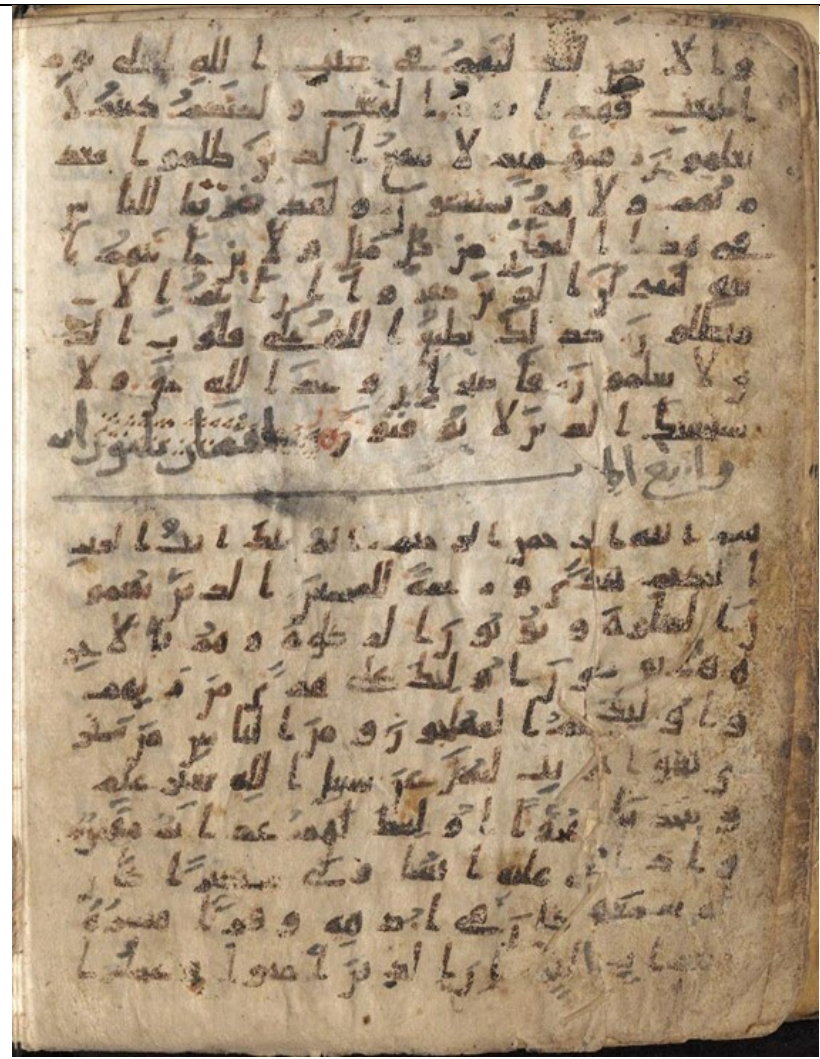 و الا يمن لقد لبثتم في كتب الله الى يوم
البعث فهذا يوم البعث و لكنكم كنتم لا
تعلمون فيومئذ لا ينفع الذين ظلموا معذ
رتهم و لا هم يستعتبون و لقد ضربنا للناس
في هذا القران من كل مثل و لئن جئتهم با
ية ليقولن الذين كفروا ان انتم الا
مبطلون كذلك يطبع الله على قلوب الذ
ين لا يعلمون فاصبر ان وعد الله حق و لا
يستخفنك الذين لا يوقنون لقمان ثلثون
واربع
بسم الله الرحمن الرحيم الم تلك ايت الكتب
الحكيم هدى و رحمة للمحسنين الذين يقيمو
ن الصلوة و يوتون الزكوة و هم بالاخر
ة هم يوقنون اولئك على هدى من ربهم
و اولئك هم المفلحون و من الناس من يشتر
ي لهو الحديث ليضل عن سبيل الله بغير علم
و يتخذها هزوا اولئك لهم عذاب مهين
و اذا تتلى عليه ايتنا ولى مستكبرا كان
لم يسمعها كان في اذنيه وقرا فبشره
بعذاب اليم ان الذين امنوا و عملوا ا